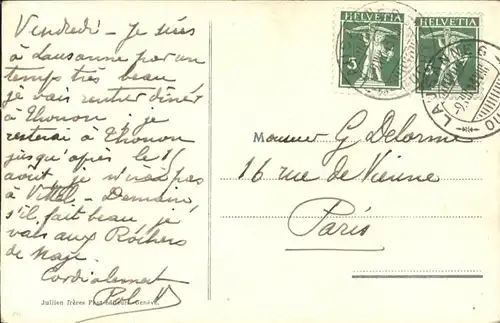 Vendredi - Je suis
à Lausanne par un
temps très beau
je vais rentrer dîner
à Thonon. je
resterai à Thonon
jusqu'après le 15
août je n'irai pas
à Vittel - Demain
s'il fait beau, je
vais aux Rochers
de Naye.
Cordialement
HELVETIA
5
HELVETIA
5
LAUSANNE
Monsieur G Delorme
16 rue de Vienne
Paris
Jullien frères Phot-éditeurs Genève.